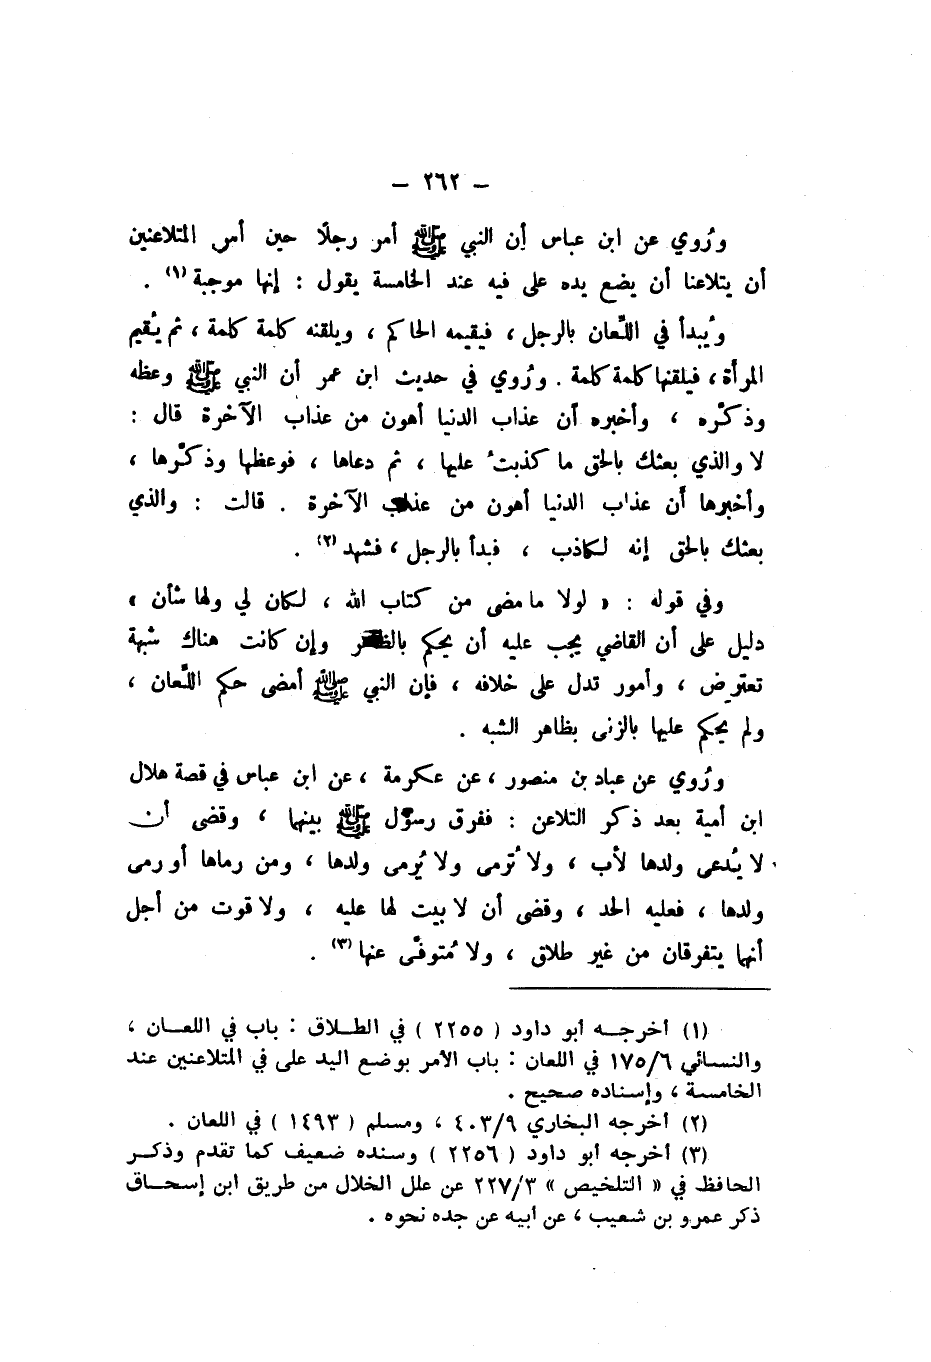 - ٢٦٢ -
ورُوي عن ابن عباس أن النبي ﷺ أمر رجلًا حين أمر المتلاعنين
أن يتلاعنا أن يضع يده على فيه عند الخامسة يقول : إنها موجبة (١) .
ويُبدأ في اللِّعان بالرجل ، فيقيمه الحاكم ، ويلقنه كلمة كلمة ، ثم يُقيم
المرأة ، فيلقنها كلمة كلمة . ورُوي في حديث ابن عمر أن النبي ﷺ وعظه
وذكّره ، وأخبره أن عذاب الدنيا أهون من عذاب الآخرة قال :
لا والذي بعثك بالحق ما كذبتُ عليها ، ثم دعاها ، فوعظها وذكّرها ،
وأخبرها أن عذاب الدنيا أهون من عذاب الآخرة . قالت : والذي
بعثك بالحق إنه لكاذب ، فبدأ بالرجل ، فشهد (٢) .
وفي قوله : « لولا ما مضى من كتاب الله ، لكان لي ولها شأن »
دليل على أن القاضي يجب عليه أن يحكم بالظاهر وإن كانت هناك شبهة
تعترض ، وأمور تدل على خلافه ، فإن النبي ﷺ أمضى حكم اللِّعان ،
ولم يحكم عليها بالزنى بظاهر الشبه .
ورُوي عن عباد بن منصور ، عن عكرمة ، عن ابن عباس في قصة هلال
ابن أمية بعد ذكر التلاعن : ففرق رسول ﷺ بينهما ، وقضى أن
لا يُدعى ولدها لأب ، ولا تُرمى ولا يُرمى ولدها ، ومن رماها أو رمى
ولدها ، فعليه الحد ، وقضى أن لا بيت لها عليه ، ولا قوت من أجل
أنهما يتفرقان من غير طلاق ، ولا مُتوفّى عنها (٣) .
(١) أخرجه أبو داود ( ٢٢٥٥ ) في الطلاق : باب في اللعان ،
والنسائي ١٧٥/٦ في اللعان : باب الأمر بوضع اليد على في المتلاعنين عند
الخامسة ، وإسناده صحيح .
(٢) أخرجه البخاري ٤٠٣/٩ ، ومسلم ( ١٤٩٣ ) في اللعان .
(٣) أخرجه أبو داود ( ٢٢٥٦ ) وسنده ضعيف كما تقدم وذكر
الحافظ في « التلخيص » ٢٢٧/٣ عن علل الخلال من طريق ابن إسحاق
ذكر عمرو بن شعيب ، عن أبيه عن جده نحوه .